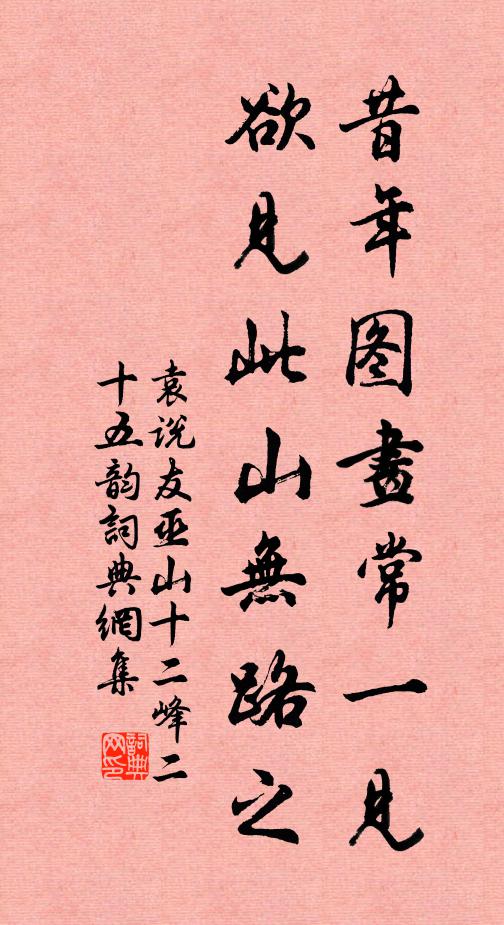 昔年图畫常一見
欲見此山無路之
袁説友巫山十二峰二
十五韵詞典網集
詞典
网印